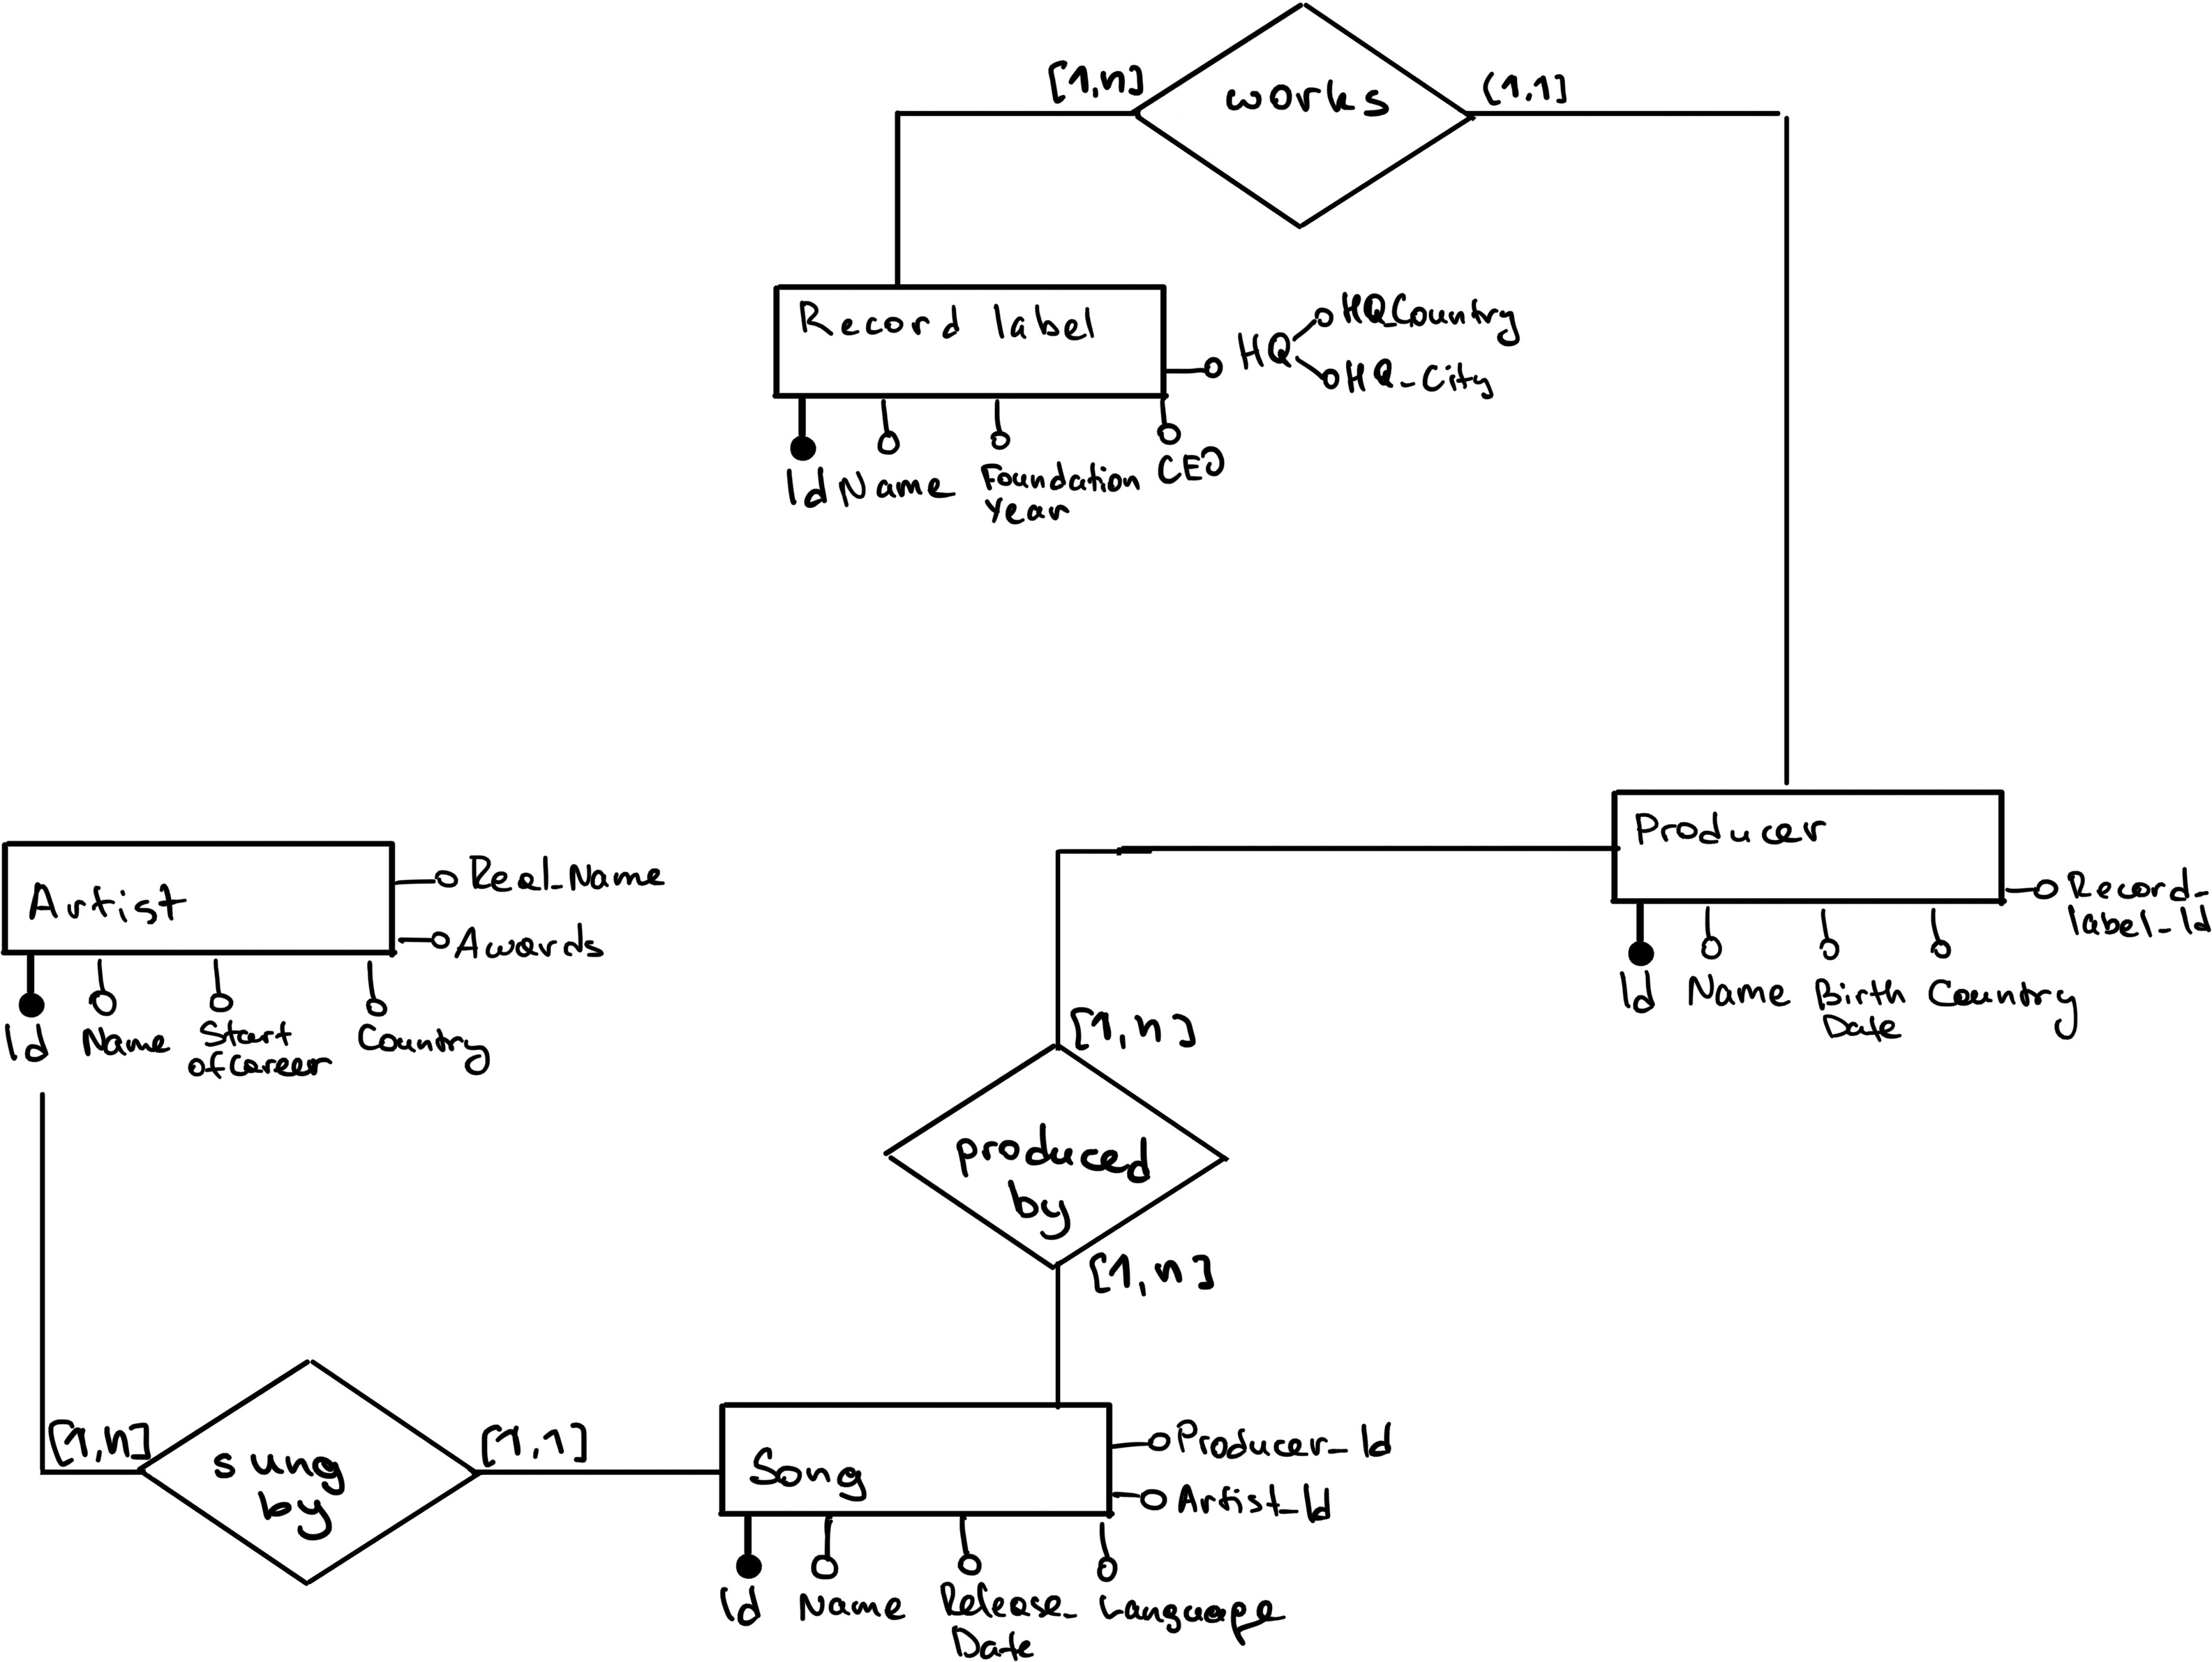 works
[1,n]
(1,1]
Record label
HQ
HQ_Country
HQ_City
Id
Name
Foundation
Year
CEO
Producer
Record_
label_Id
Id
Name
Birth
Date
Country
Artist
Real_Name
Awards
Id
Name
Start
of Career
Country
[1,n]
produced
by
[1,n]
[1,n]
sung
by
[1,1]
Song
Producer_Id
Artist_Id
Id
Name
Release_
Date
Language